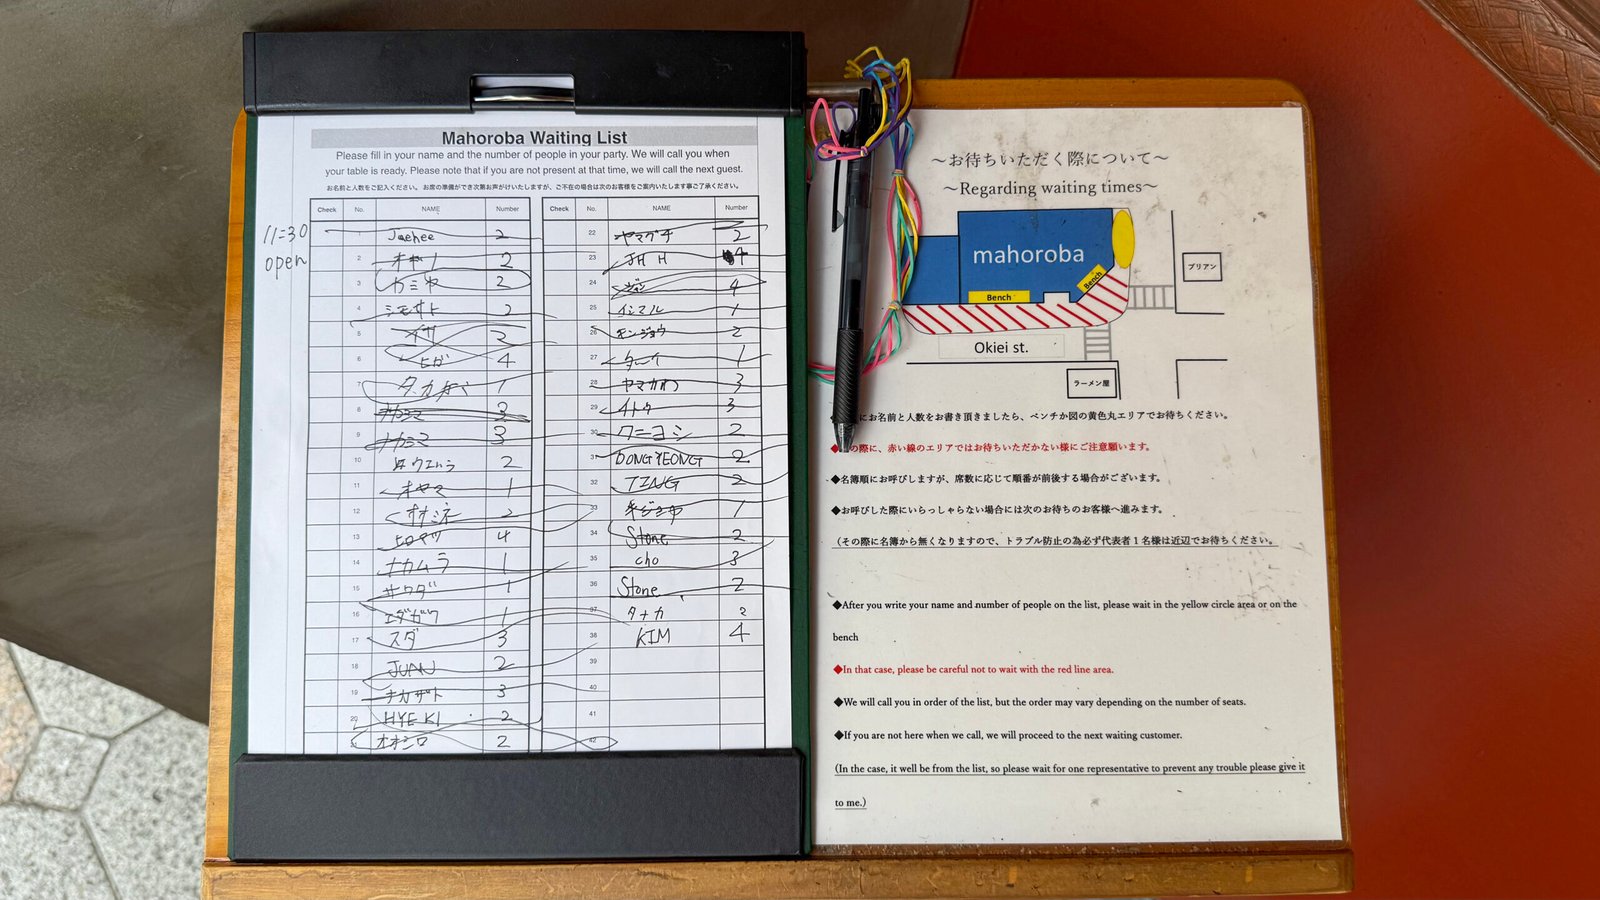 11:30
open
Mahoroba Waiting List
Please fill in your name and the number of people in your party. We will call you when
your table is ready. Please note that if you are not present at that time, we will call the next guest.
お名前と人数をご記入ください。お席の準備ができ次第お声がけいたしますが、ご不在の場合は次のお客様をご案内いたします事ご了承ください。
Check No. NAME Number
1 Jaehee 2
2 オヤノ 2
3 カミヤ 2
4 シモサト 2
5 イサ 2
6 ヒガ 4
7 タカガキ 1
8 ナカシマ 3
9 ナカシマ 3
10 2
11 オヤマ 1
12 オオミネ 2
13 ヒロマツ 4
14 ナカムラ 1
15 サワダ 1
16 エダガワ 1
17 スダ 3
18 JUNU 2
19 ナカザト 3
20 HYE KI 2
オオシロ 2
Check No. NAME Number
22 ヤマグチ 2
23 JH H 4
24 4
25 イシマル 1
26 キンジョウ 2
27 ターイ 1
28 3
29 イトウ 3
30 ワニヨシ 2
31 DONGYEONG 2
32 TING 2
33 キジュヤ 1
34 Stone 2
35 cho 3
36 Stone 2
37 タナカ 2
38 KIM 4
39
40
41
42
～お待ちいただく際について～
～Regarding waiting times～
mahoroba
Bench
Bench
ブリアン
Okiei st.
ラーメン屋
にお名前と人数をお書き頂きましたら、ベンチか図の黄色丸エリアでお待ちください。
◆その際に、赤い線のエリアではお待ちいただかない様にご注意願います。
◆名簿順にお呼びしますが、席数に応じて順番が前後する場合がございます。
◆お呼びした際にいらっしゃらない場合には次のお待ちのお客様へ進みます。
（その際に名簿から無くなりますので、トラブル防止の為必ず代表者１名様は近辺でお待ちください。
◆After you write your name and number of people on the list, please wait in the yellow circle area or on the
bench
◆In that case, please be careful not to wait with the red line area.
◆We will call you in order of the list, but the order may vary depending on the number of seats.
◆If you are not here when we call, we will proceed to the next waiting customer.
(In the case, it well be from the list, so please wait for one representative to prevent any trouble please give it
to me.)